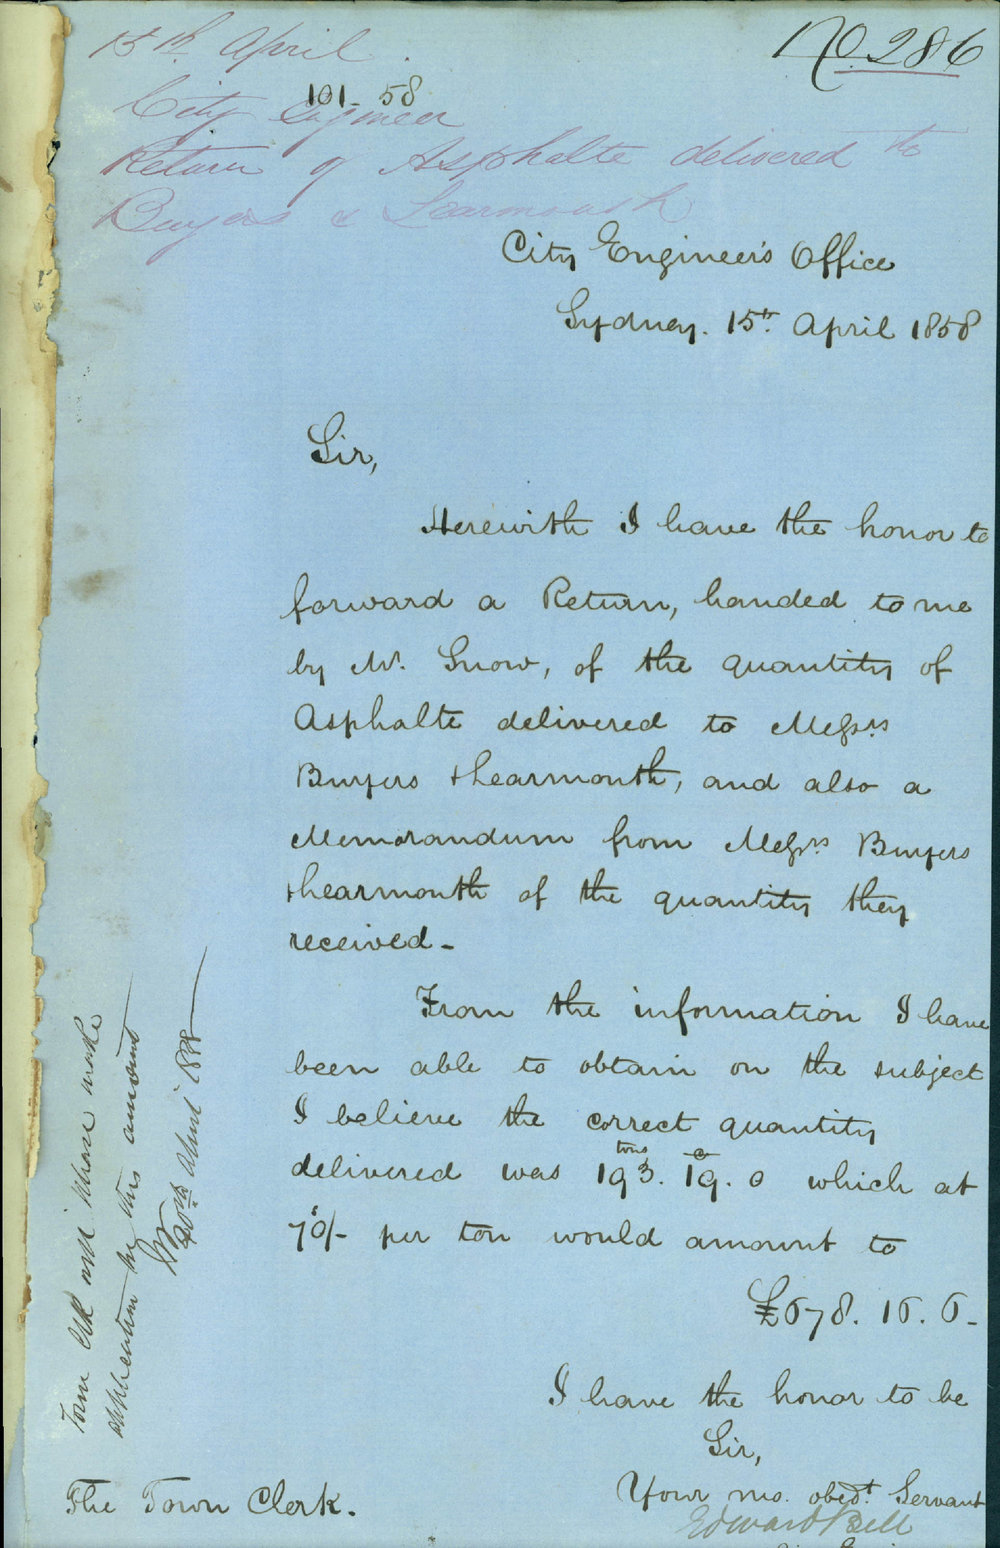 15th April.
No. 286
101-58
City Engineer
Return of Asphalte delivered to
Buyers & Learmonth
City Engineer's Office
Sydney. 15th April 1858
Sir,
Herewith I have the honor to
forward a Return, handed to me
by Mr. Snow, of the quantity of
Asphalte delivered to Messrs
Buyers & Learmonth, and also a
Memorandum from Messrs Buyers
& Learmonth of the quantity they
received -
From the information I have
been able to obtain on the subject
I believe the correct quantity
delivered was 193 tons. 19 c. 0 which at
70/- per ton would amount to
£678. 16. 6 -
I have the honor to be
Sir,
Your mo. obedt. Servant
Edward Bell
The Town Clerk.
Town Clk will please make
application for this amount
20th April 1858